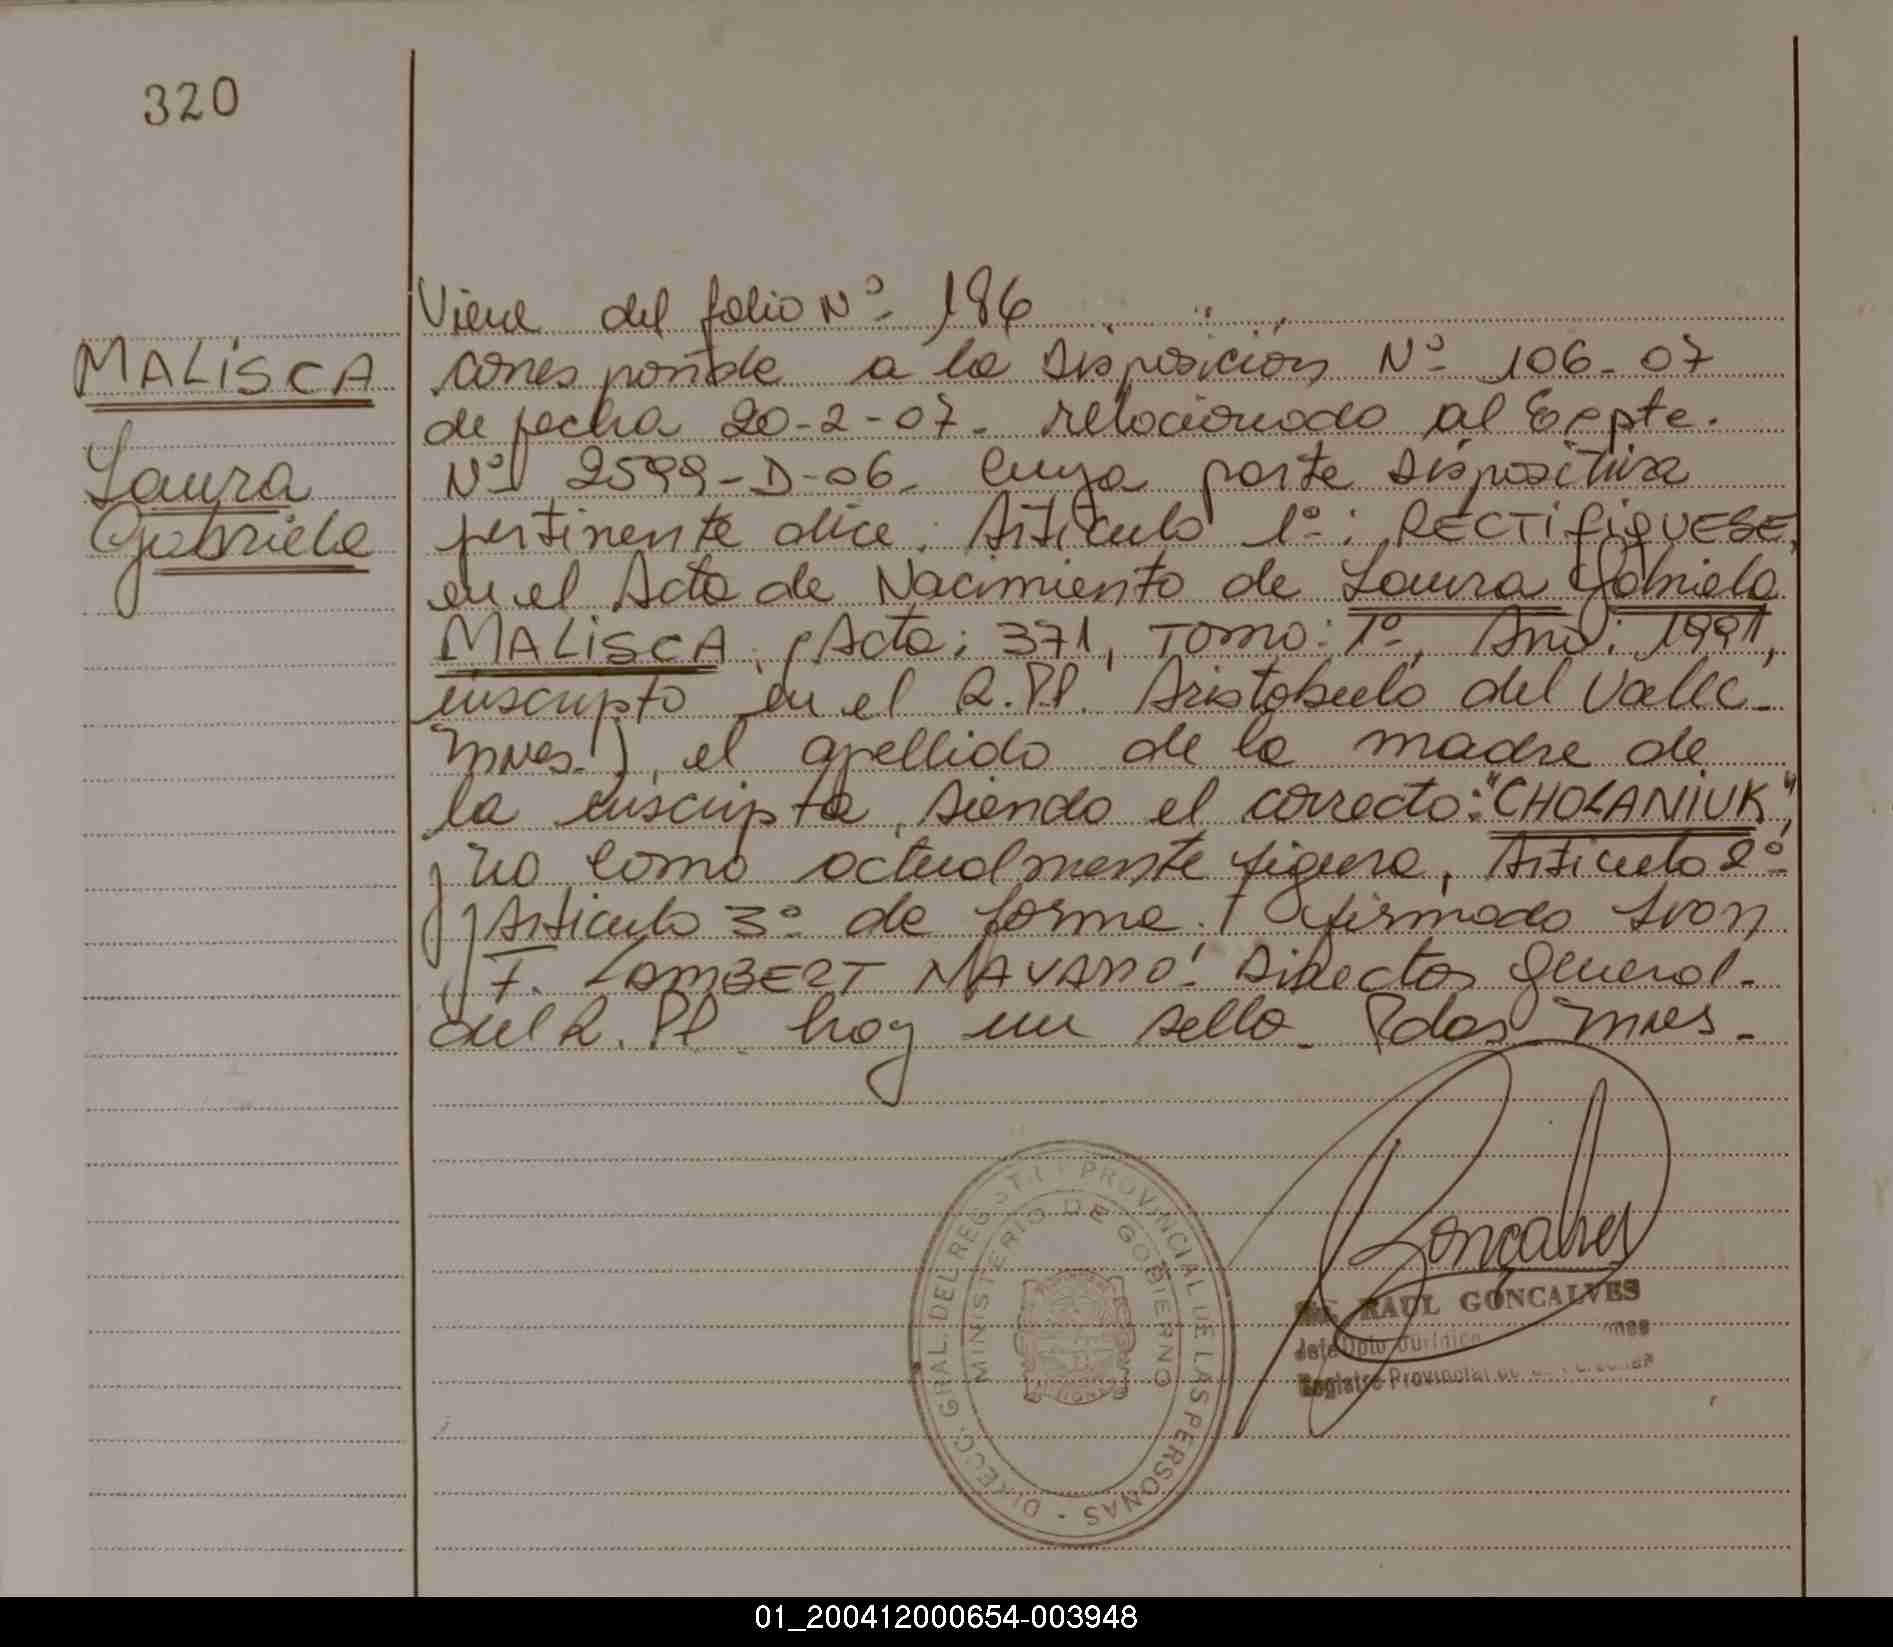 320
MALISCA
Laura
Gabriela
Viene del folio Nº 186
corresponde a la Disposicion Nº 106-07
de fecha 20-2-07. relacionado al Expte.
Nº 2599-D-06. Cuya parte dispositiva
pertinente dice: Articulo 1º: RECTIFIQUESE,
en el Acta de Nacimiento de Laura Gabriela
MALISCA. (Acta: 371, Tomo: 1º, Año: 1991,
inscripto en el R.P.P. Aristobulo del Valle-
Mnes.), el apellido de la madre de
la inscripta, siendo el correcto: "CHOLANIUK",
y no como actualmente figura, Articulo 2º
y Articulo 3º de forma. firmado Ivon
F. LAMBERT NAVARRO. Director General.
del R.P.P. hay un sello. Pdas Mnes.
DIRECC. GRAL. DEL REGISTRO PROVINCIAL DE LAS PERSONAS -
MINISTERIO DE GOBIERNO
MISIONES
Gonçalves
RAUL GONÇALVES
Jefe Dpto. Jurídico
Registro Provincial de las Personas
01_200412000654-003948